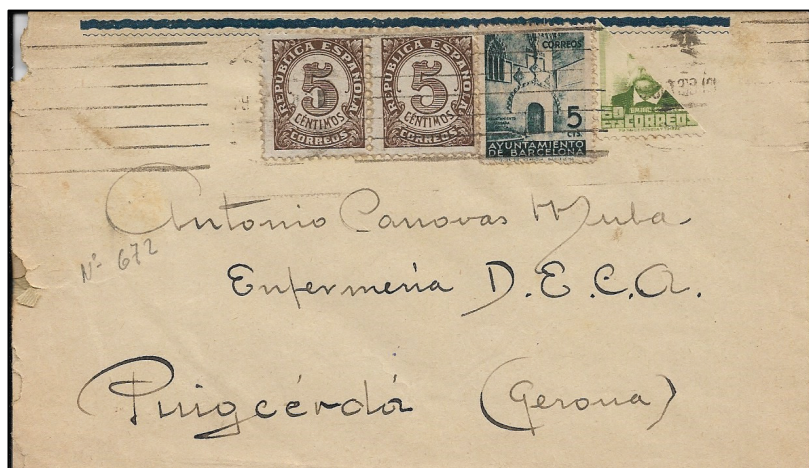 REPUBLICA ESPAÑOLA
5
CÉNTIMOS
CORREOS
REPUBLICA ESPAÑOLA
5
CÉNTIMOS
CORREOS
CORREOS
5
CTS.
AYUNTAMIENTO
DE BARCELONA
60
CORREO
Antonio Canovas
Nº 672
Enfermería D.E.C.A.
Puigcérdá (Gerona)